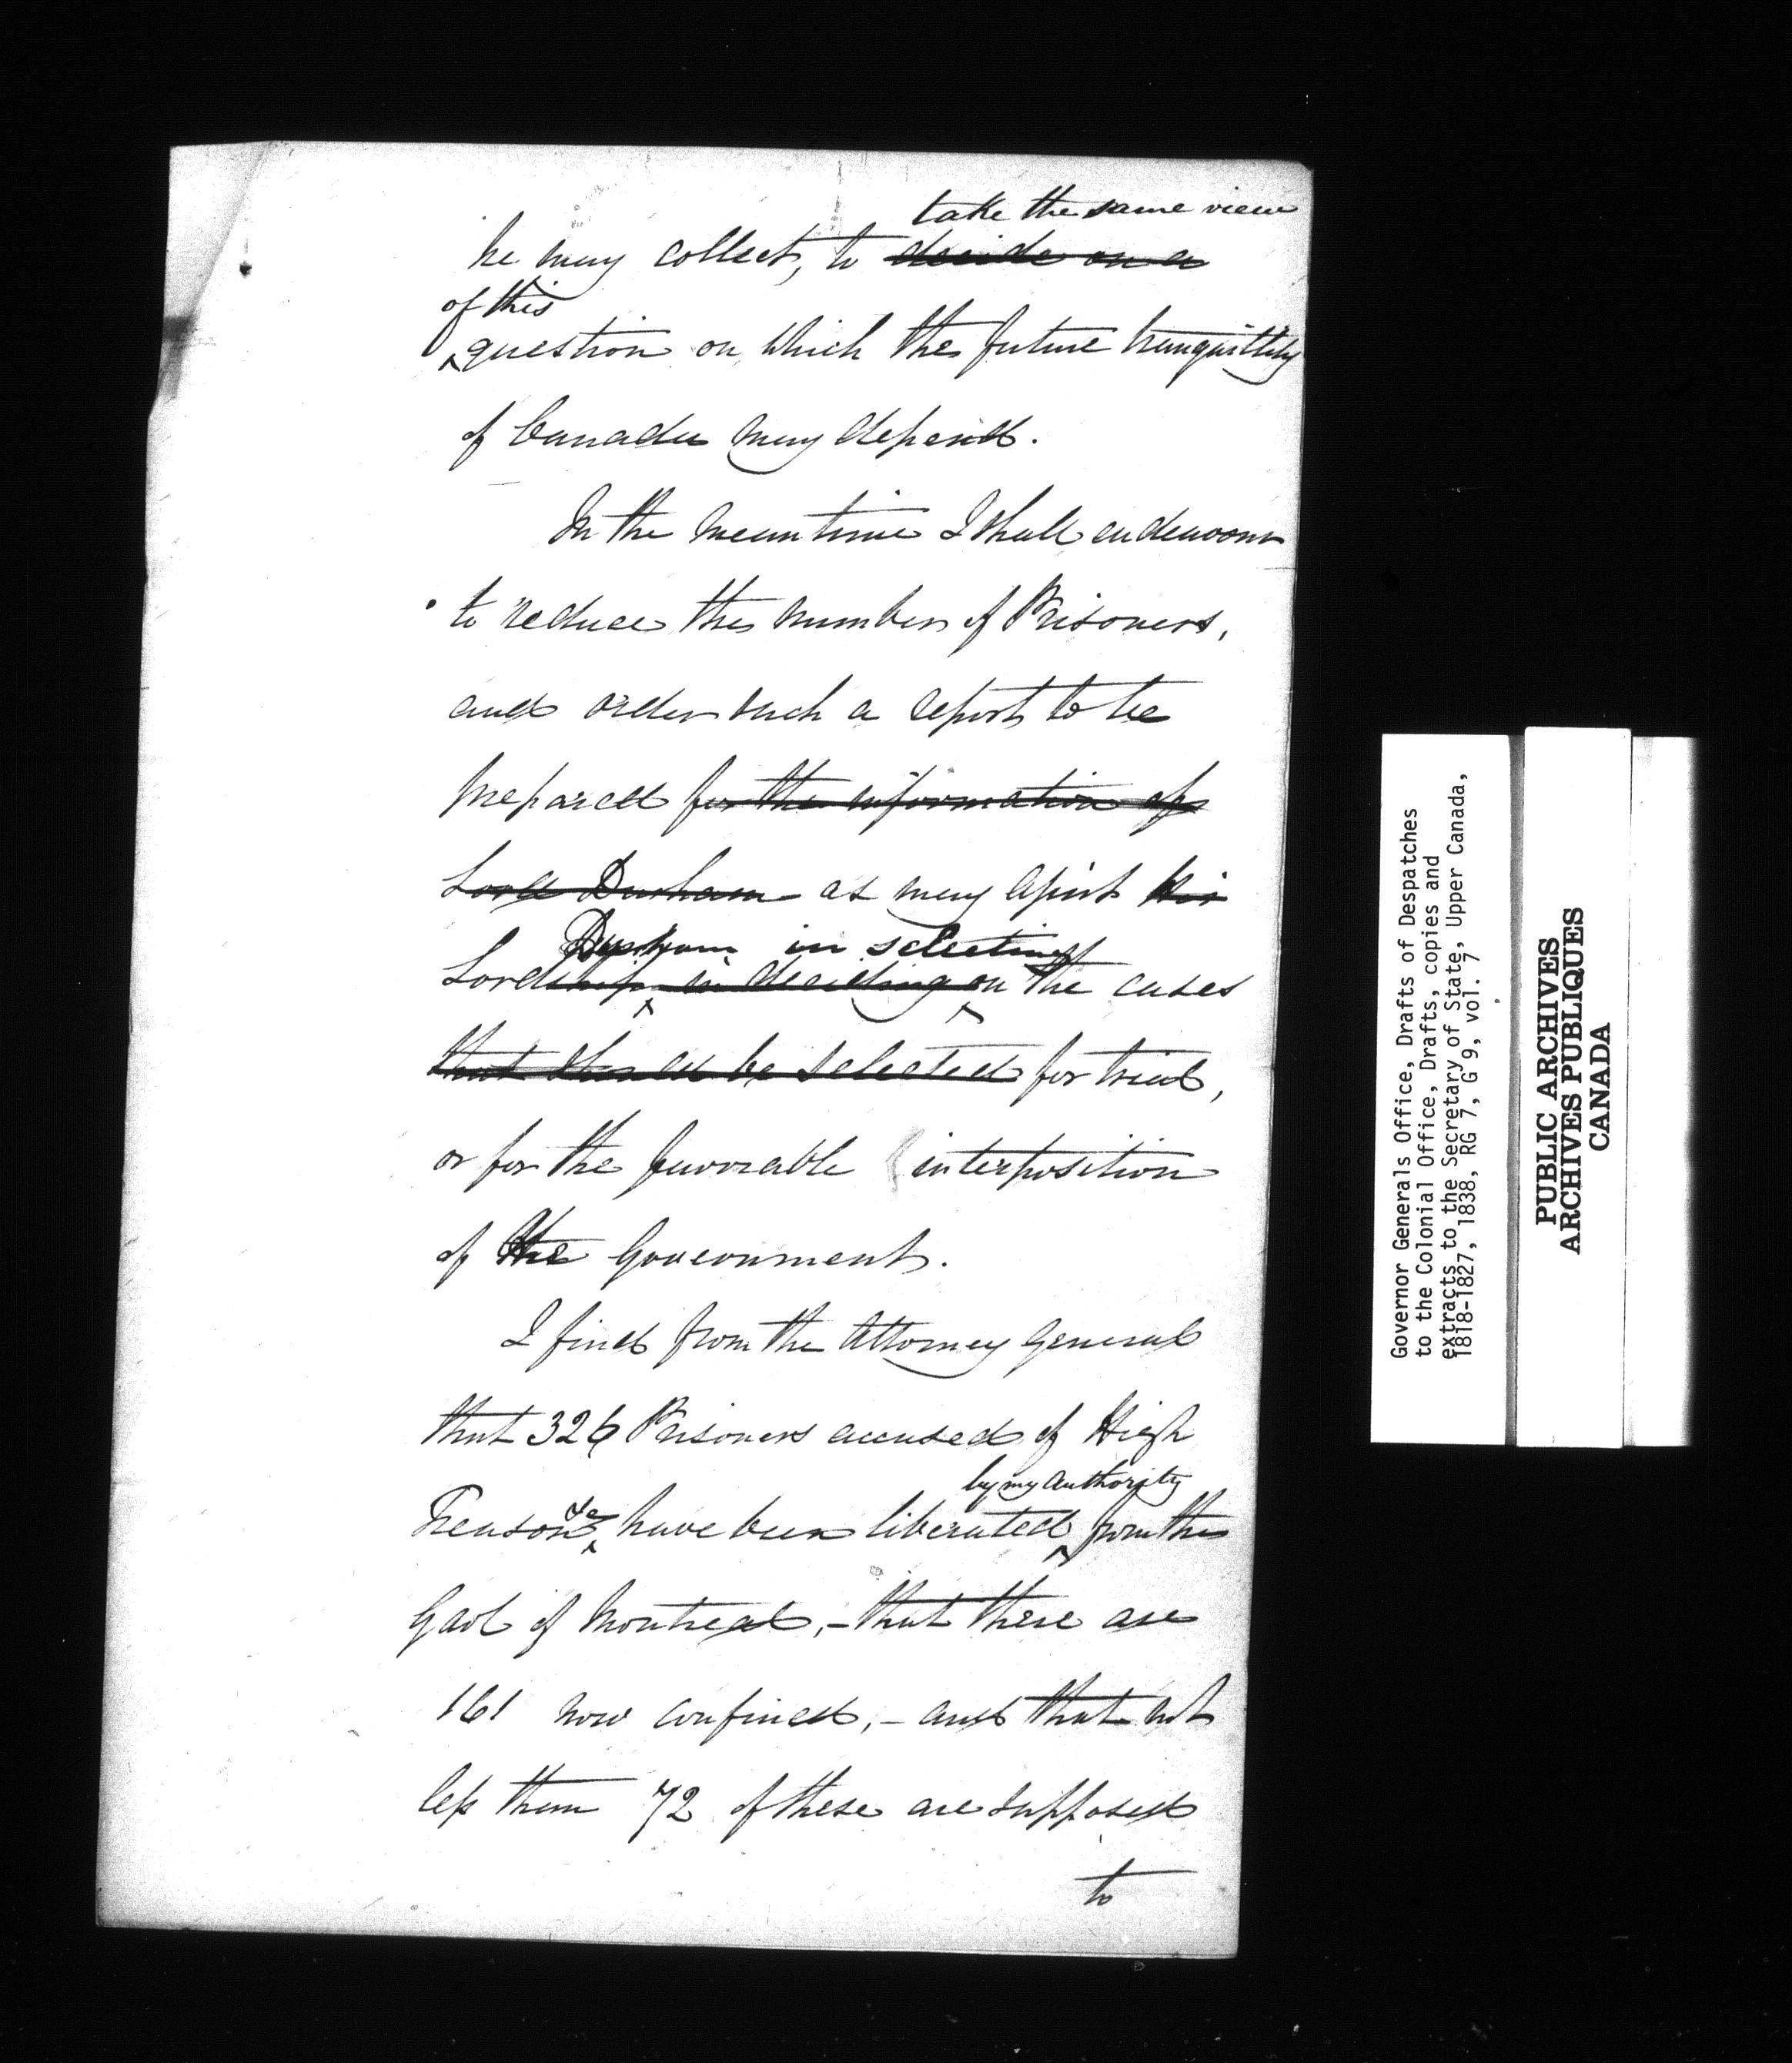 take the same view
he may collect, to decide on a
of this
question on which the future tranquillity
of Canada may depend.
In the mean time I shall endeavour
to reduce the number of Prisoners,
and order such a report to be
prepared for the information of
Lord Durham as may assist His
Durham in selecting
Lordship in deciding on the cases
that should be selected for trial,
or for the favorable interposition
of the Government.
I find from the Attorney General
that 326 Prisoners accused of High
by my authority
Treason &c have been liberated from the
Gaol of Montreal, – that there are
161 now confined, – and that not
less than 72 of these are supposed
to
Governor Generals Office, Drafts of Despatches
to the Colonial Office, Drafts, copies and
extracts to the Secretary of State, Upper Canada,
1818-1827, 1838, RG 7, G 9, vol. 7
PUBLIC ARCHIVES
ARCHIVES PUBLIQUES
CANADA